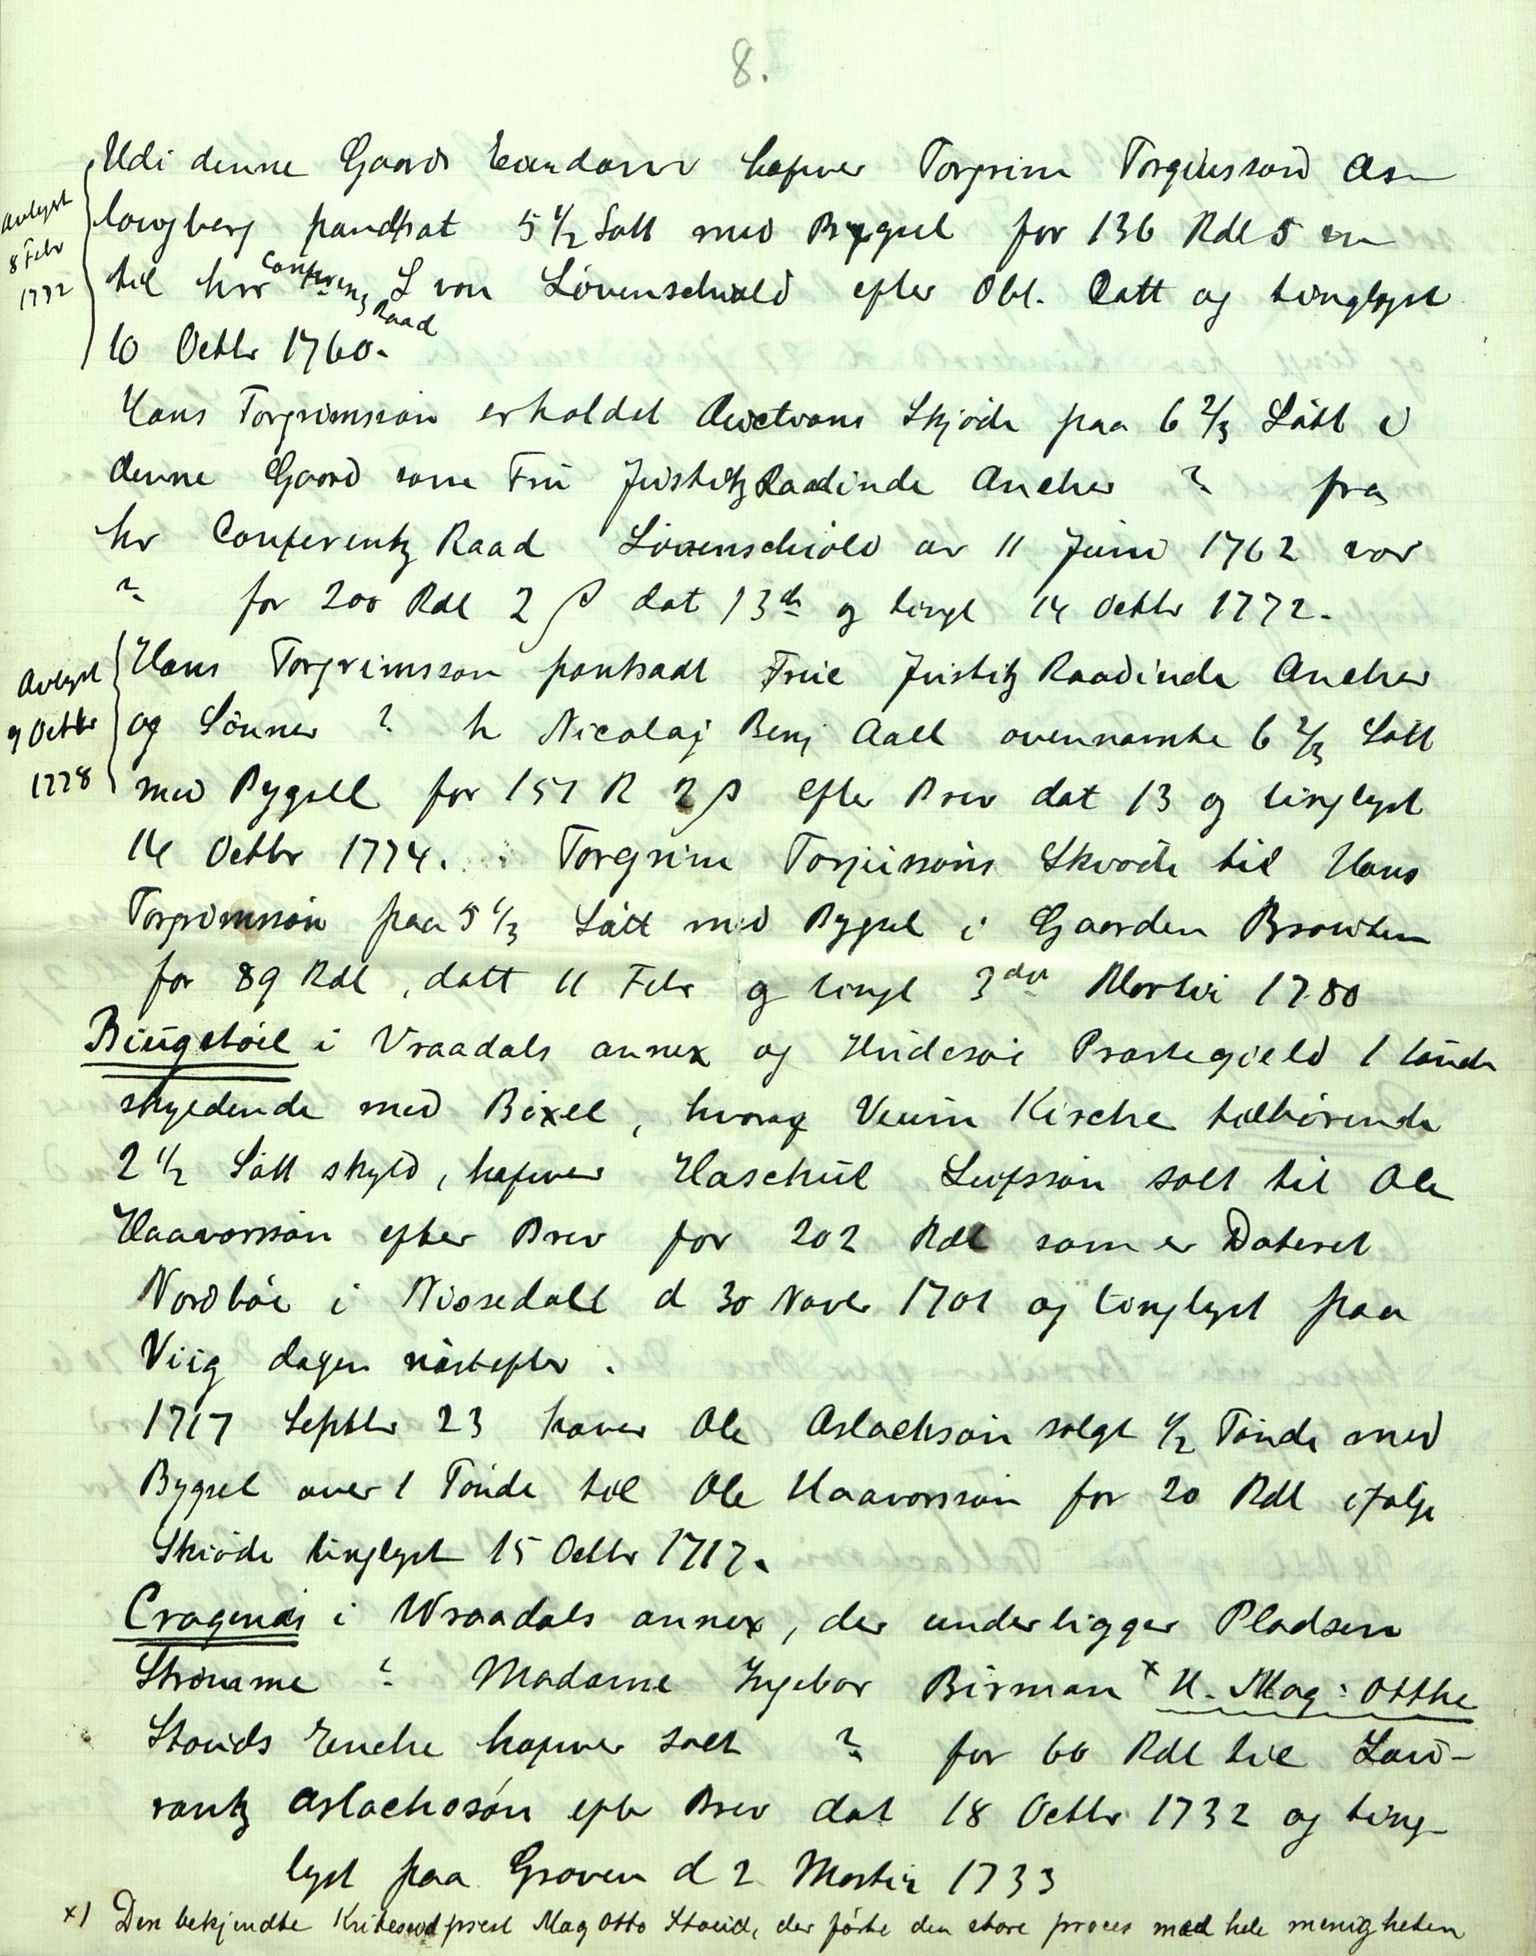 8.
Udi denne Gaards Eiendom hafuer Torgrim Torgiussøn As-
lougberg pandsat 5 1/2 Sått med Bygsel for 136 Rdl 5
til hrr Conferenz Raad S von Løvenschiold efter Obl. Datt og tinglyst
10 Octbr 1760.
Avlyst
8 Febr
1772
Hans Torgrimssøn erholdet Auctions Skjøde paa 6 2/3 Sått i
denne Gaard som Fru Justitz Raadinde Ancher ? fra
hr Conferentz Raad Løvenschiold av 11 Juni 1762 vor
? for 200 Rdl 2 ß dat 13de og tingl 14 Octbr 1772.
Hans Torgrimsson pantsadt Frue Justitz Raadinde Ancher
og Sønner ? h Nicolaj Benj Aall ovennamte 6 2/3 Sått
med Bygsell for 151 R 2 ß efter Brev dat 13 og tinglyst
14 Octbr 1774. Torgrim Torjussøns Skiøde til Hans
Torgrimssøn paa 5 1/3 Sått med Bygsel i Gaarden Brouten
for 89 Rdl, datt 11 Febr og tingl 3die Martii 1780
Avlyst
9 Octbr
1778
Biugstøil i Vraadals annex og Hvidesøi Præstegield 1 tønde
skyldende med Bøxel, hvoraf Veum Kirche tilhørende
2 1/2 Sått skyld, hafuer Haschul Leifssøn solt til Ole
Haavorssøn efter Brev for 202 Rdl som er Dateret
Nordbøe i Nissedall d 30 Novbr 1701 og tinglyst paa
Viig dagen næstefter.
1717 Septbr 23 haver Ole Aslachsøn solgt 1/2 Tønde med
Bygsel over 1 Tønde til Ole Haavorssøn for 20 Rdl ifølge
Skiøde tinglyst 15 Octbr 1717.
Cragenæs i Wraadals annex, der underligger Pladsen
Strømme ? Madame Ingebor Birman x H. Mag: Otthe
Stouds Enche hafuer solt ? for 60 Rdl til Lau-
rantz Aslachsøn efter Brev dat 18 Octbr 1732 og ting-
lyst paa Groven d 2 Martii 1733
x) Den bekjendte Kviteseidprest Mag Otto Stoud, der førte den store proces med hele menigheten